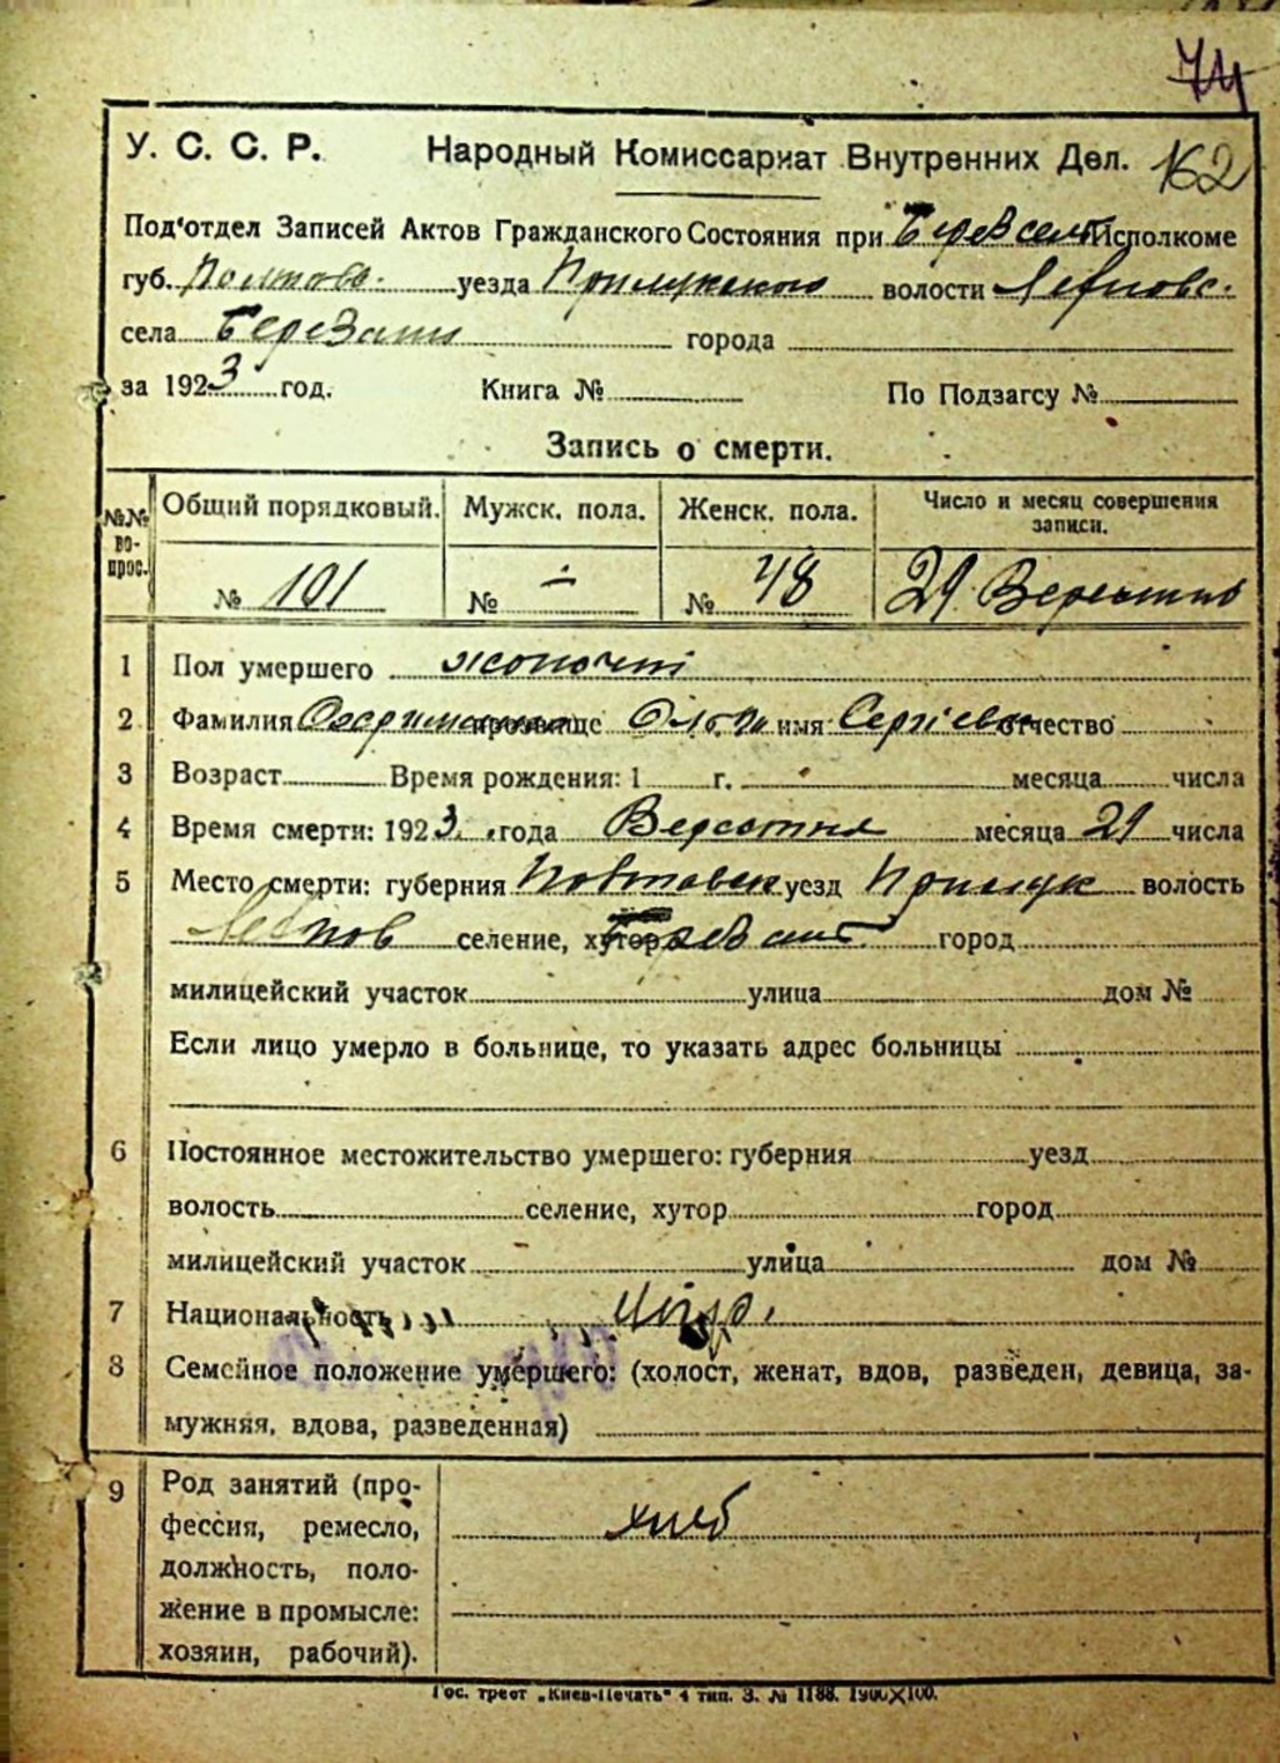 74
У. С. С. Р. Народный Комиссариат Внутренних Дел. 162
Под'отдел Записей Актов Гражданского Состояния при Исполкоме
губ. Полтавс. уезда Прилукского волости
села города
за 1923 год. Книга № По Подзагсу №
Запись о смерти.
№№ вопрос. Общий порядковый. Мужск. пола. Женск. пола. Число и месяц совершения записи.
№ 101 № — № 48
1 Пол умершего
2 Фамилия прозвище имя отчество
3 Возраст Время рождения: 1 г. месяца числа
4 Время смерти: 1923 года Вересня месяца 21 числа
5 Место смерти: губерния уезд Прилук волость
селение, хутор город
милицейский участок улица дом №
Если лицо умерло в больнице, то указать адрес больницы
6 Постоянное местожительство умершего: губерния уезд
волость селение, хутор город
милицейский участок улица дом №
7 Национальность
8 Семейное положение умершего: (холост, женат, вдов, разведен, девица, за-
мужняя, вдова, разведенная)
9 Род занятий (про-
фессия, ремесло, хлеб
должность, поло-
жение в промысле:
хозяин, рабочий).
Гос. трест „Киев-Печать" 4 тип. З. № 1188. 1900×100.